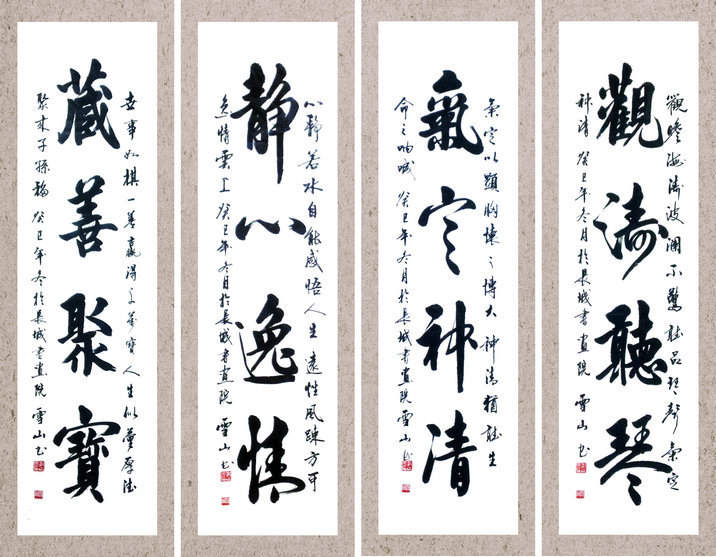 觀濤聽琴
觀瞻海濤波瀾不驚聽品琴聲氣定
神清 癸巳年冬月於長城書畫院 雪山書
氣定神清
氣定以顯胸懷之博大神清猶生
命之吶喊 癸巳年冬月於長城書畫院雪山書
靜心逸情
心靜若水自能感悟人生遠性風疎方可
逸情雲上 癸巳年冬月於長城書畫院 雪山書
藏善聚寶
世事如棋一善贏得寶人生似夢厚德
聚來子孫福 癸巳年冬於長城書畫院 雪山書